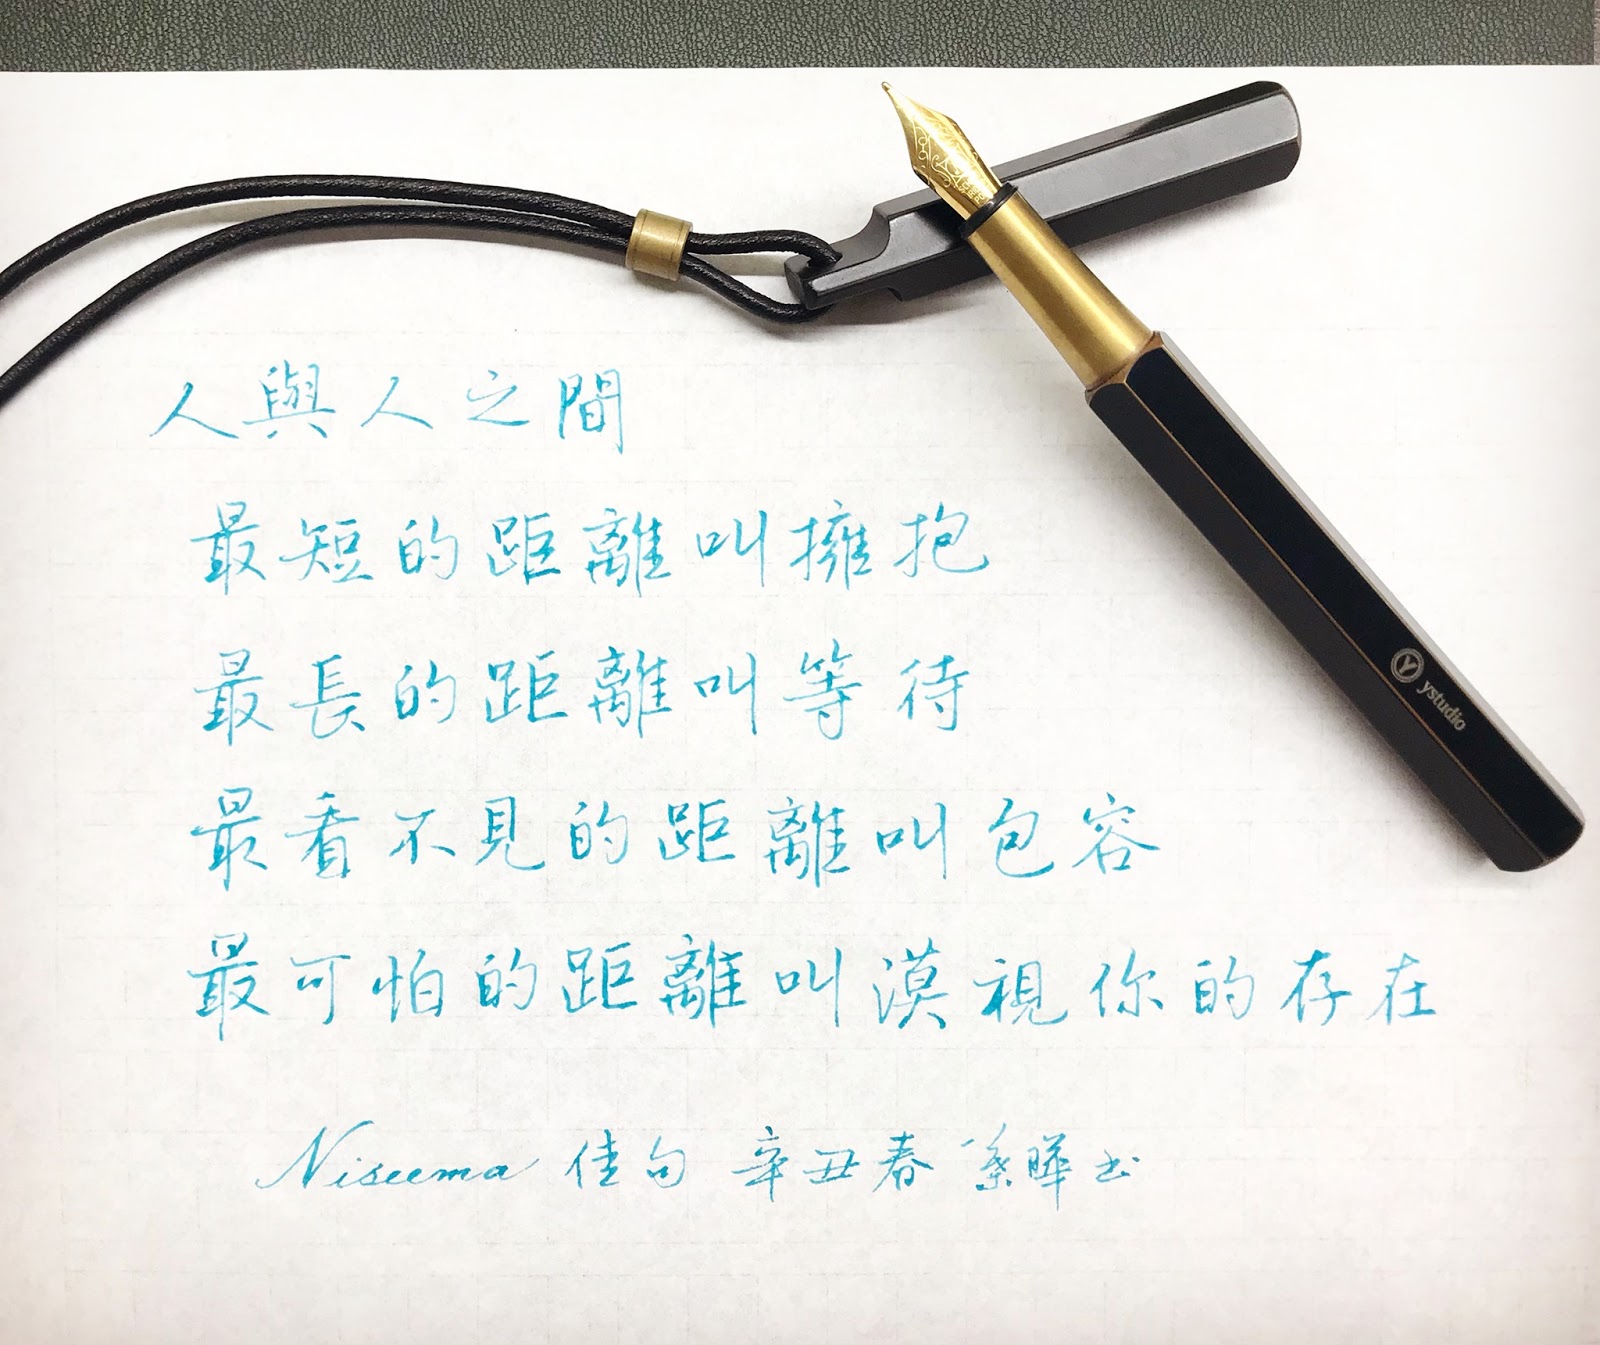 人與人之間
最短的距離叫擁抱
最長的距離叫等待
最看不見的距離叫包容
最可怕的距離叫漠視你的存在
Niseema 佳句 辛丑春 孫曄书
ystudio